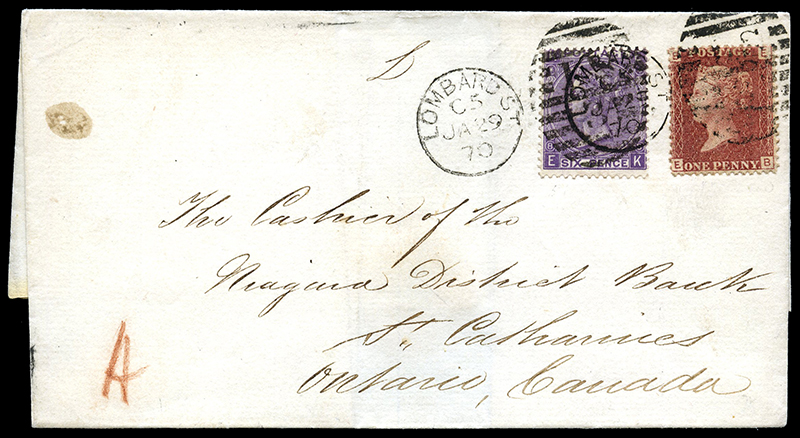 L
LOMBARD ST
C5
JA 29
70
LOMBARD ST
C5
JA 29
70
8
E SIX PENCE K
B POSTAGE E
E ONE PENNY B
The Cashier of the
Niagara District Bank
St. Catharines
Ontario, Canada
A